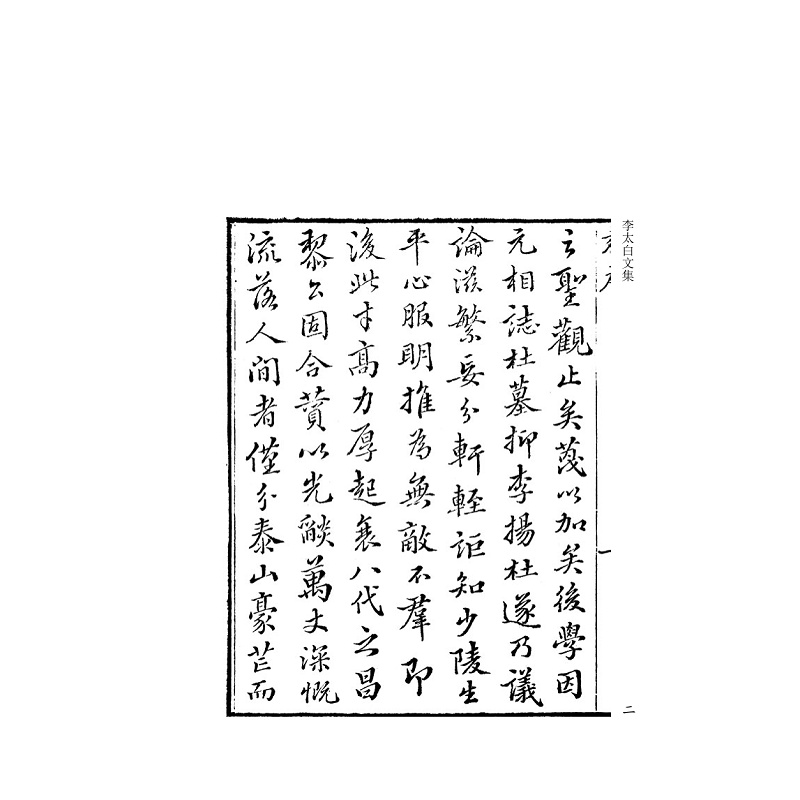 李太白文集
云聖觀止矣蔑以加矣後學因
元相誌杜墓抑李揚杜遂乃議
論滋繁妄分軒輊詎知少陵生
平心服明推為無敵不羣即
後此才高力厚起衰八代之昌
黎公固合贊以光燄萬丈深慨
流落人間者僅分泰山豪芒而
二